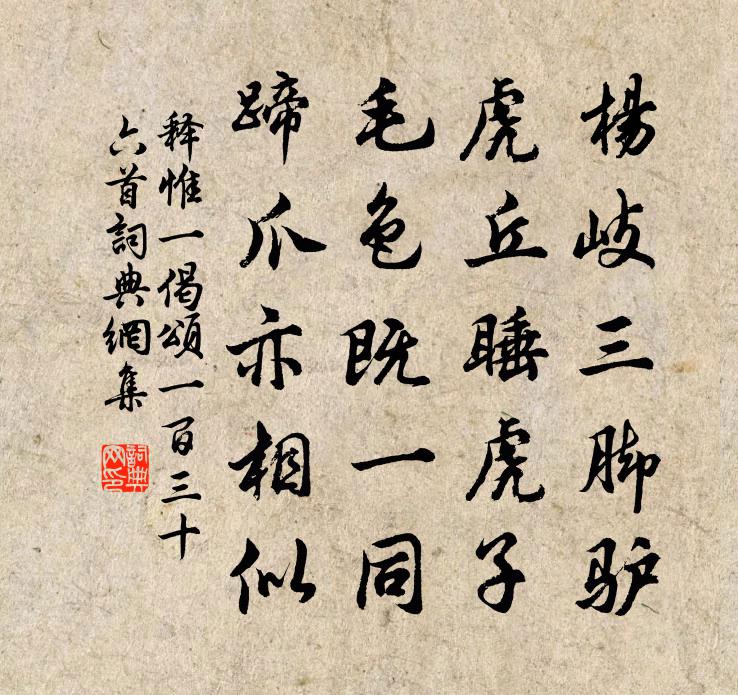 楊岐三脚驴
虎丘睡虎子
毛色既一同
蹄爪亦相似
释惟一偈頌一百三十
六首詞典網集
詞典
网印